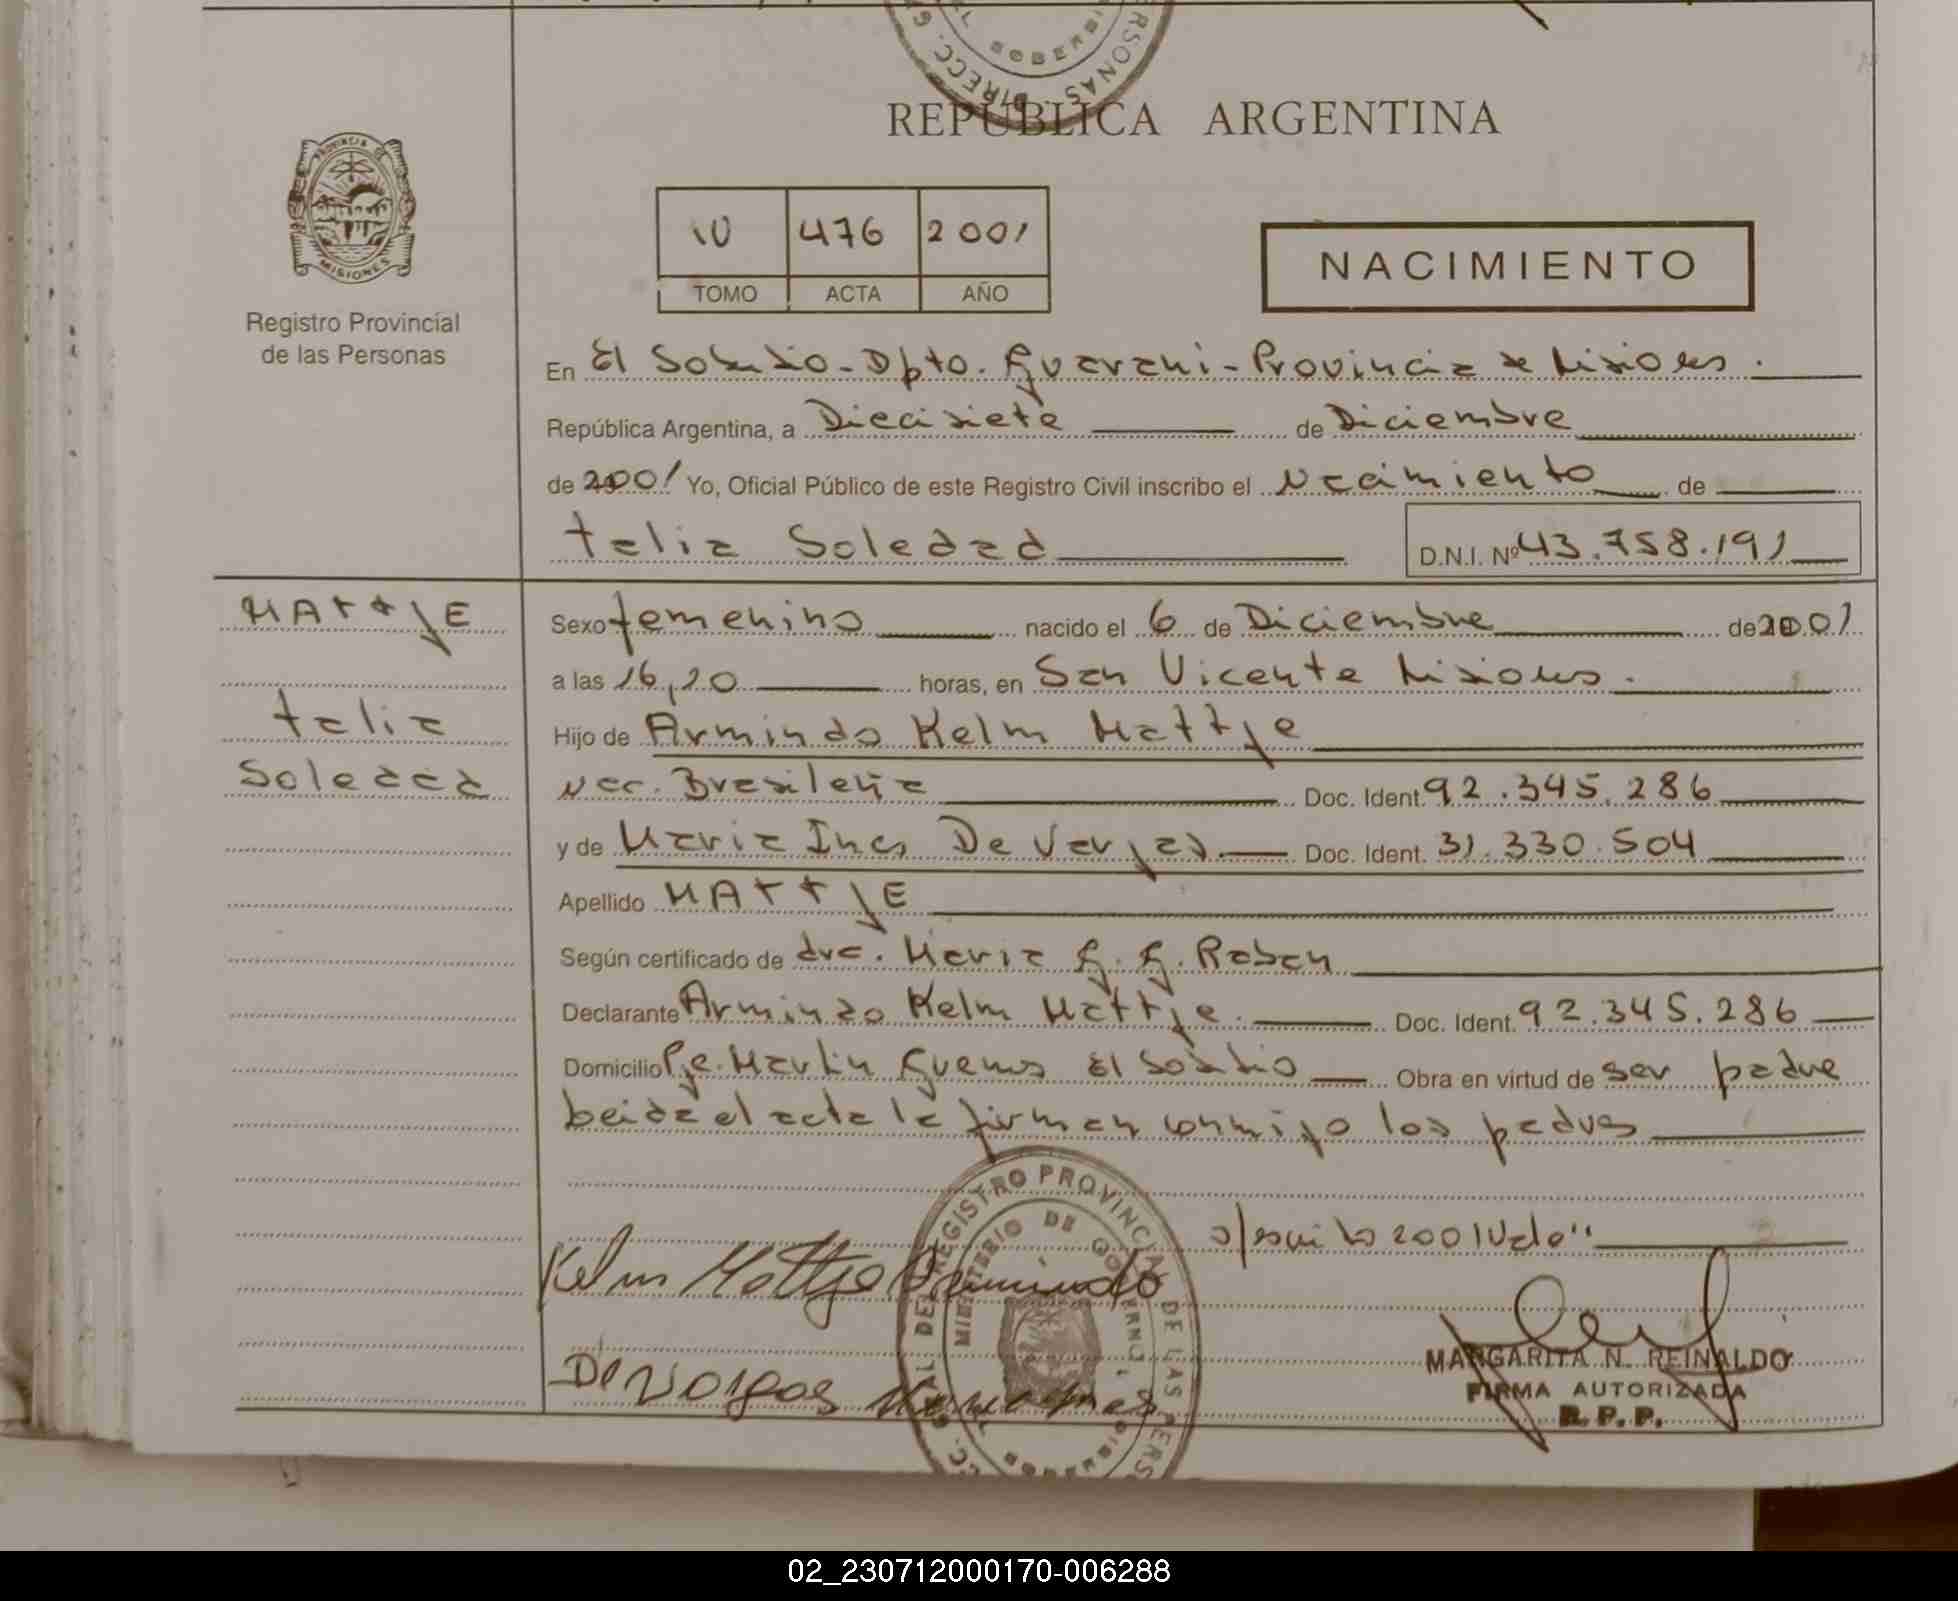 REPUBLICA ARGENTINA
PROVINCIA DE
MISIONES
Registro Provincial
de las Personas
IV 476 2001
TOMO ACTA AÑO
NACIMIENTO
En El Soberbio - Dpto. Guarani - Provincia de Misiones.
República Argentina, a Diecisiete de Diciembre
de 2001 Yo, Oficial Público de este Registro Civil inscribo el Nacimiento de
Talia Soledad D.N.I. Nº 43.758.191
MAttjE
Talia
Soledad
Sexo femenino nacido el 6 de Diciembre de 2001
a las 16,20 horas, en San Vicente Misiones.
Hijo de Armindo Kelm Mattje
nac. Brasileña Doc. Ident. 92.345.286
y de Maria Ines De Vargas. Doc. Ident. 31.330.504
Apellido MAttjE
Según certificado de dra. Maria G. G. Raban
Declarante Armindo Kelm Mattje. Doc. Ident. 92.345.286
Domicilio Pje. Martin Guemes El Soberbio Obra en virtud de ser padre
leida el acta la firman conmigo los padres
s/escrito 2001 Vale"
Kelm Mattje Armindo
De Vargas Maria Ines
MARGARITA N. REINALDO
FIRMA AUTORIZADA
R.P.P.
02_230712000170-006288